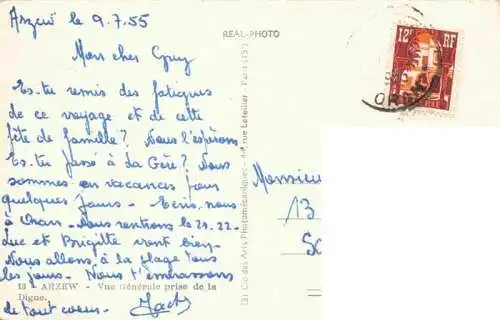 Arzew le 9.7.55
Mon cher Guy
Es-tu remis des fatigues
de ce voyage et de cette
fête de famille? Nous l'espérons.
Es-tu passé à la Gère? Nous
sommes en vacances pour
quelques jours. Ecris nous
à Oran. Nous rentrons le 21.22.
Luc et Brigitte vont bien.
Nous allons à la plage tous
les jours. Nous t'embrassons
13 - ARZEW - Vue Générale prise de la
Digue.
de tout coeur. Jack
REAL-PHOTO
Cie des Arts Photomécaniques - rue Letellier - Paris (15e)
12F RF
ORAN
Monsieur
13